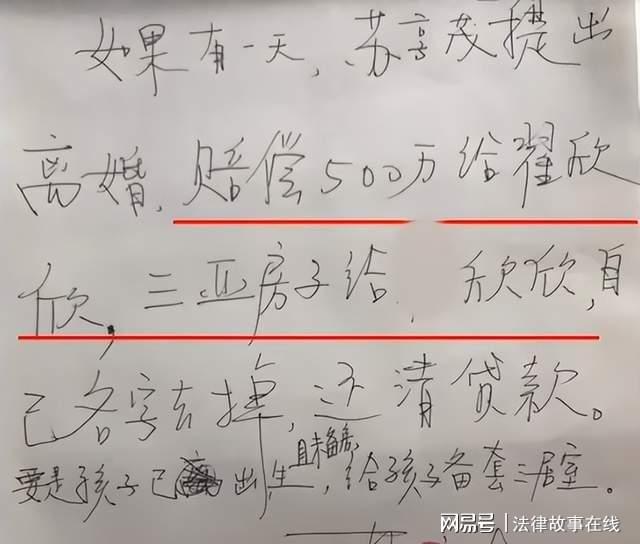 如果有一天,苏享茂提出
离婚,赔偿500万给翟欣
欣,三亚房子给 欣欣,自
己名字去掉,还清贷款。
且未备房,
要是孩子已出生,给孩子备套三居室。
网易号 | 法律故事在线